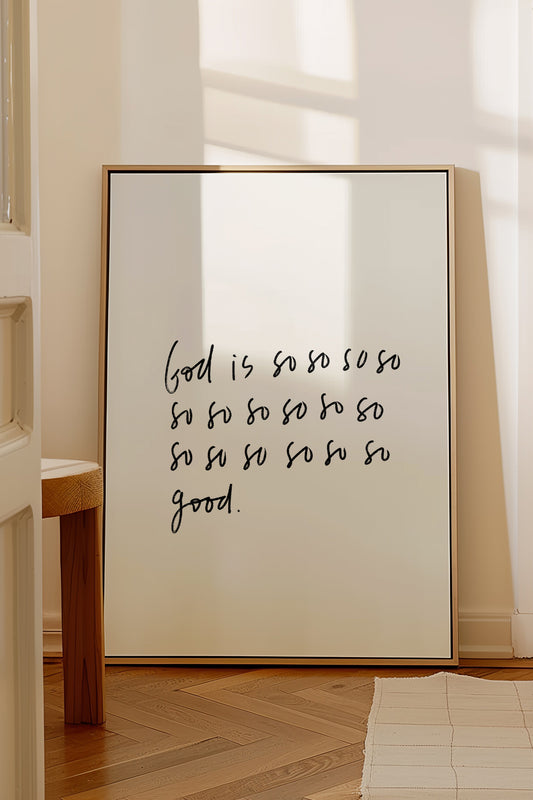 God is so so so so
so so so so so so
so so so so so so
good.